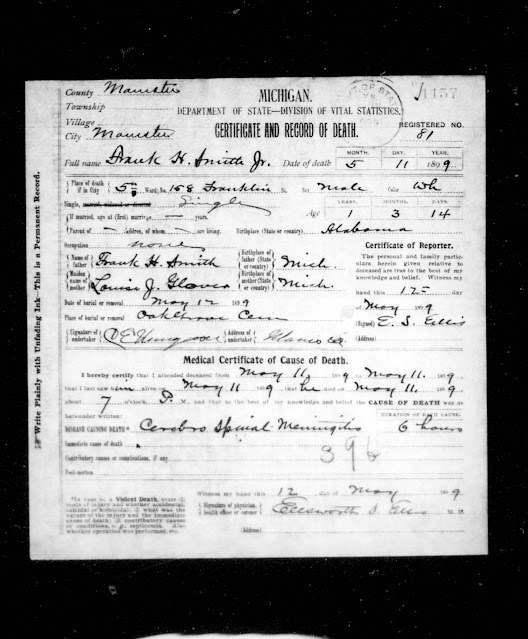 County Manistee
Township
Village
City Manistee
MICHIGAN.
DEPARTMENT OF STATE—DIVISION OF VITAL STATISTICS.
CERTIFICATE AND RECORD OF DEATH.
1157
REGISTERED NO.
81
Full name Frank H. Smith Jr. Date of death MONTH. DAY. YEAR.
5 11 1899
Place of death if in City 5th Ward; No. 158 Franklin St. Sex Male Color Wh
Single, married, widowed or divorced Single
If married, age at (first) marriage, — years. Age YEARS. MONTHS. DAYS.
1 3 14
Parent of — children, of whom — are living. Birthplace (State or country) Alabama
Occupation none
Name of father Frank H. Smith Birthplace of father (State or country) Mich.
Maiden name of mother Louise J. Glover Birthplace of mother (State or country) Mich.
Date of burial or removal May 12 1899
Place of burial or removal Oakgrove Cem
Signature of undertaker Address of undertaker Manistee
Certificate of Reporter.
The personal and family particulars herein given relative to deceased are true to the best of my knowledge and belief. Witness my
hand this 12 day
of May 1899
(Signed) E. S. Ellis
Medical Certificate of Cause of Death.
I hereby certify that I attended deceased from May 11, 1899 to May 11. 1899
that I last saw him alive on May 11 1899, that he died on May 11. 1899
about 7 o'clock, P. M., and that to the best of my knowledge and belief the CAUSE OF DEATH was as
hereunder written:
DURATION OF EACH CAUSE.
DISEASE CAUSING DEATH* Cerebro Spinal Meningitis 6 hours
Immediate cause of death
Contributory causes or complications, if any
396
Post-mortem
Witness my hand this 12 day of May 1899
Signature of physician, health officer or coroner Ellsworth S. Ellis M. D.
(Address)
*In case of a Violent Death, state (1) mode of injury and whether accidental, suicidal or homicidal; (2) what was the nature of the injury and the immediate cause of death; (3) contributory causes or conditions, e. g., septicemia. Also whether operation was performed, etc.
Write Plainly with Unfading Ink—This is a Permanent Record.